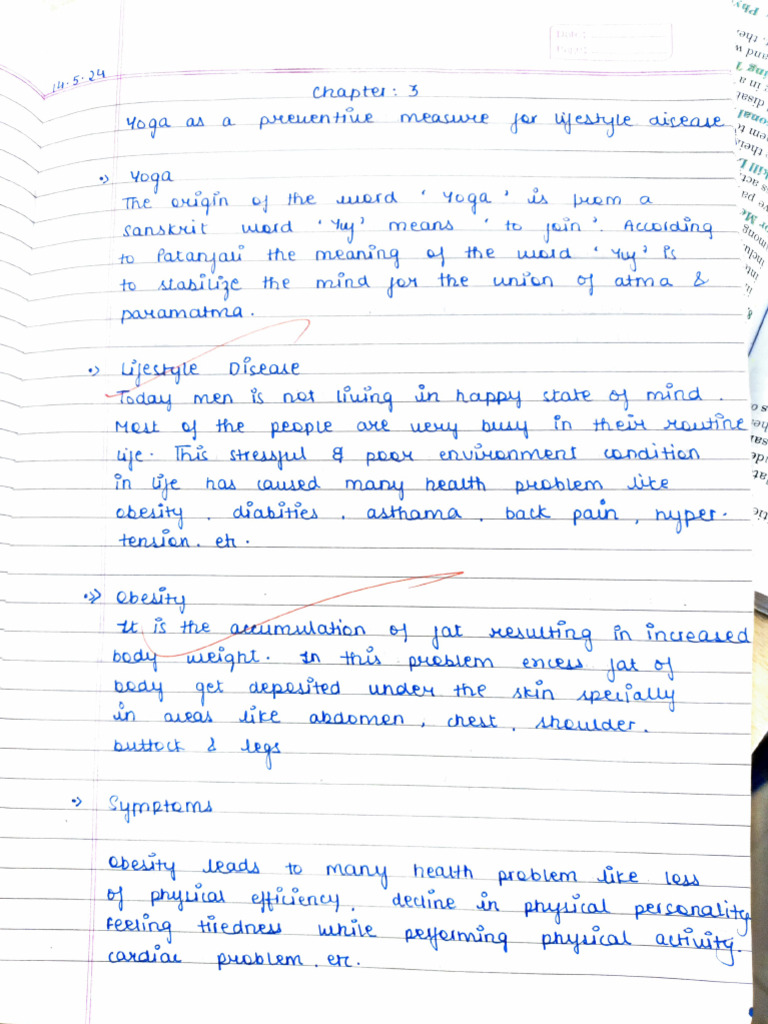 14.5.24
Date:
Page:
Chapter: 3
Yoga as a preventive measure for lifestyle disease
•) Yoga
The origin of the word 'Yoga' is from a
sanskrit word 'Yuj' means 'to join'. According
to Patanjali the meaning of the word 'Yuj' is
to stabilize the mind for the union of atma &
paramatma.
•) Lifestyle Disease
Today men is not living in happy state of mind.
Most of the people are very busy in their routine
life. This stressful & poor environment condition
in life has caused many health problem like
obesity, diabities, asthama, back pain, hyper-
tension. etc.
•) Obesity
It is the accumulation of fat resulting in increased
body weight. In this problem excess fat of
body get deposited under the skin specially
in areas like abdomen, chest, shoulder,
buttock & legs
•) Symptoms
Obesity leads to many health problem like less
of physical efficiency, decline in physical personality
feeling tiredness while performing physical activity.
cardiac problem. etc.